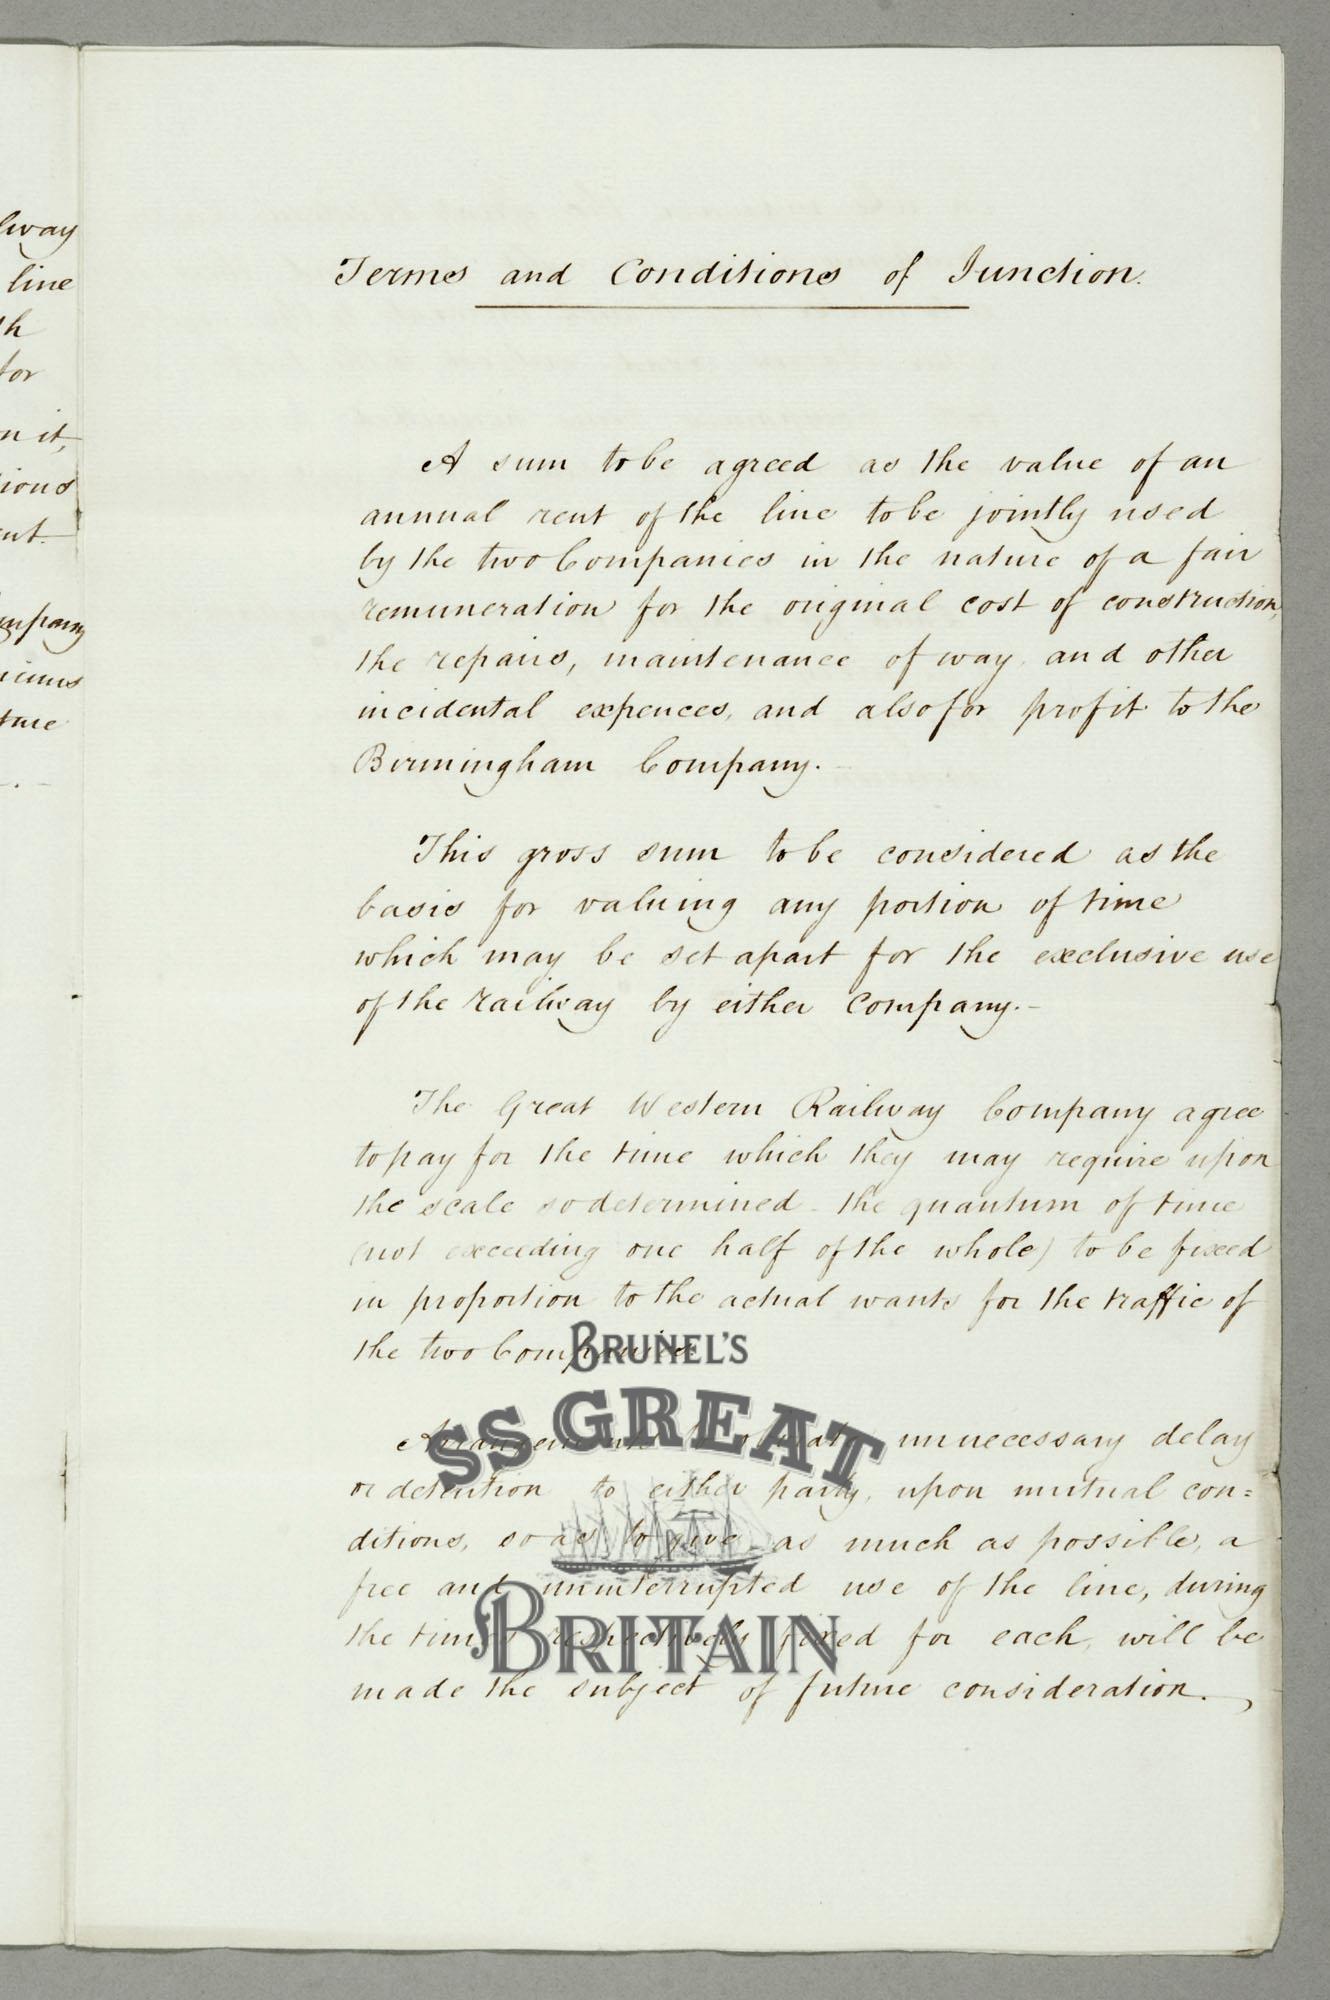 lway
line
th
for
n it,
ions
ent.
ompany
icums
ture
Terms and Conditions of Junction.
A sum to be agreed as the value of an
annual rent of the line to be jointly used
by the two Companies in the nature of a fair
remuneration for the original cost of construction,
the repairs, maintenance of way, and other
incidental expences, and also for profit to the
Birmingham Company.
This gross sum to be considered as the
basis for valuing any portion of time
which may be set apart for the exclusive use
of the railway by either Company.-
The Great Western Railway Company agree
to pay for the time which they may require upon
the scale so determined - the quantum of time
(not exceeding one half of the whole) to be fixed
in proportion to the actual wants for the traffic of
the two Companies.
BRUNEL'S
SS GREAT
BRITAIN
Arrangements unnecessary delay
or detention to either party, upon mutual con=
ditions, so as to give, as much as possible, a
free and uninterrupted use of the line, during
the times respectively fixed for each, will be
made the subject of future consideration.